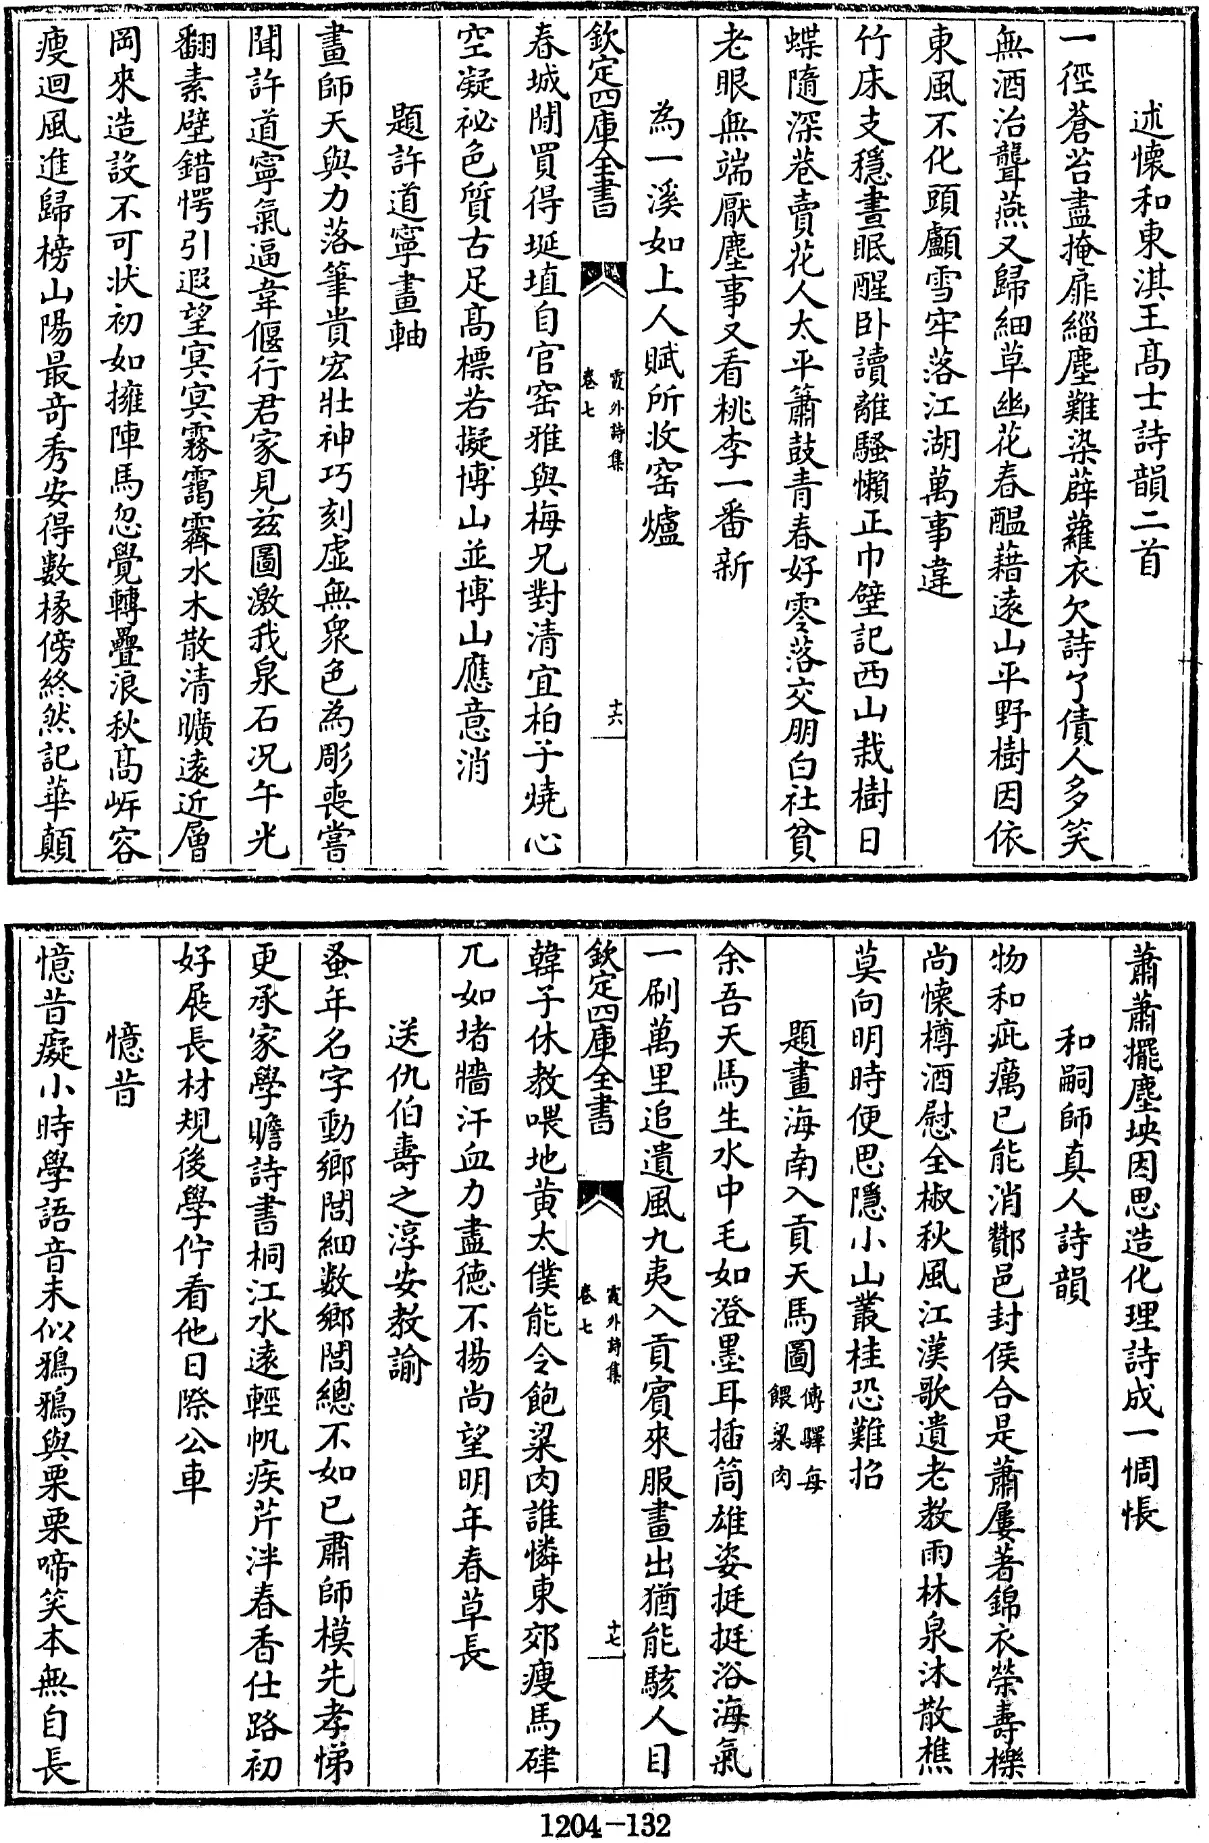 述懷和東淇王髙士詩韻二首
一徑蒼苔盡掩扉緇塵難染薜蘿衣欠詩了債人多笑
無酒治聾燕又歸細草幽花春醖藉遠山平野樹因依
東風不化頭顱雪牢落江湖萬事違
竹床支穩晝眠醒卧讀離騷懶正巾壁記西山栽樹日
蝶隨深巷賣花人太平簫鼓青春好零落交朋白社貧
老眼無端厭塵事又看桃李一番新
為一溪如上人賦所收窑爐
欽定四庫全書
霞外詩集
卷七
十六
春城閒買得埏埴自官窑雅與梅兄對清宜柏子燒心
空凝祕色質古足髙標若擬博山並博山應意消
題許道寧畫軸
畫師天與力落筆貴宏壯神巧刻虛無衆色為彫喪嘗
聞許道寧氣逼韋偃行君家見兹圖激我泉石况午光
翻素壁錯愕引遐望冥冥霧靄霽水木散清曠遠近層
岡來造設不可狀初如擁陣馬忽覺轉疊浪秋髙岍容
瘦迴風進歸榜山陽最竒秀安得數椽傍終然記華顛
蕭蕭擺塵坱因思造化理詩成一惆悵
和嗣師真人詩韻
物和疵癘已能消酇邑封侯合是蕭屢著錦衣榮壽櫟
尚懷樽酒慰全椒秋風江漢歌遺老教雨林泉沐散樵
莫向明時便思隱小山叢桂恐難招
題畫海南入貢天馬圖傳驛每餵粱肉
余吾天馬生水中毛如澄墨耳插筒雄姿挺挺浴海氣
一刷萬里追遺風九夷入貢賓來服畫出猶能駭人目
欽定四庫全書
霞外詩集
卷七
十七
韓子休教喂地黄太僕能令飽粱肉誰憐東郊瘦馬硉
兀如堵牆汗血力盡德不揚尚望明年春草長
送仇伯壽之淳安教諭
蚤年名字動鄉閭細數鄉閭總不如已肅師模先孝悌
更承家學贍詩書桐江水遠輕帆疾芹泮春香仕路初
好展長材規後學佇看他日際公車
憶昔
憶昔癡小時學語音未似鴉鴉與栗栗啼笑本無自長
1204-132